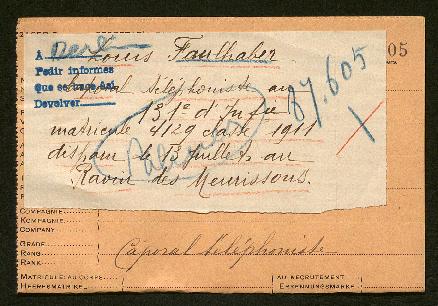 05
A
Louis Faulhaber
Pedir informes
Caporal téléphoniste au
Devolver
87.605
131e d'Infie
matricule 4129 classe 1911
disparu le 13 juillet au
Ravin des Meurissons.
COMPAGNIE
KOMPAGNIE
COMPANY
GRADE
RANG
RANK
Caporal téléphoniste
MATRICULE: AU CORPS
HEERESMATRIKEL
AU RECRUTEMENT
ERKENNUNGSMARKE